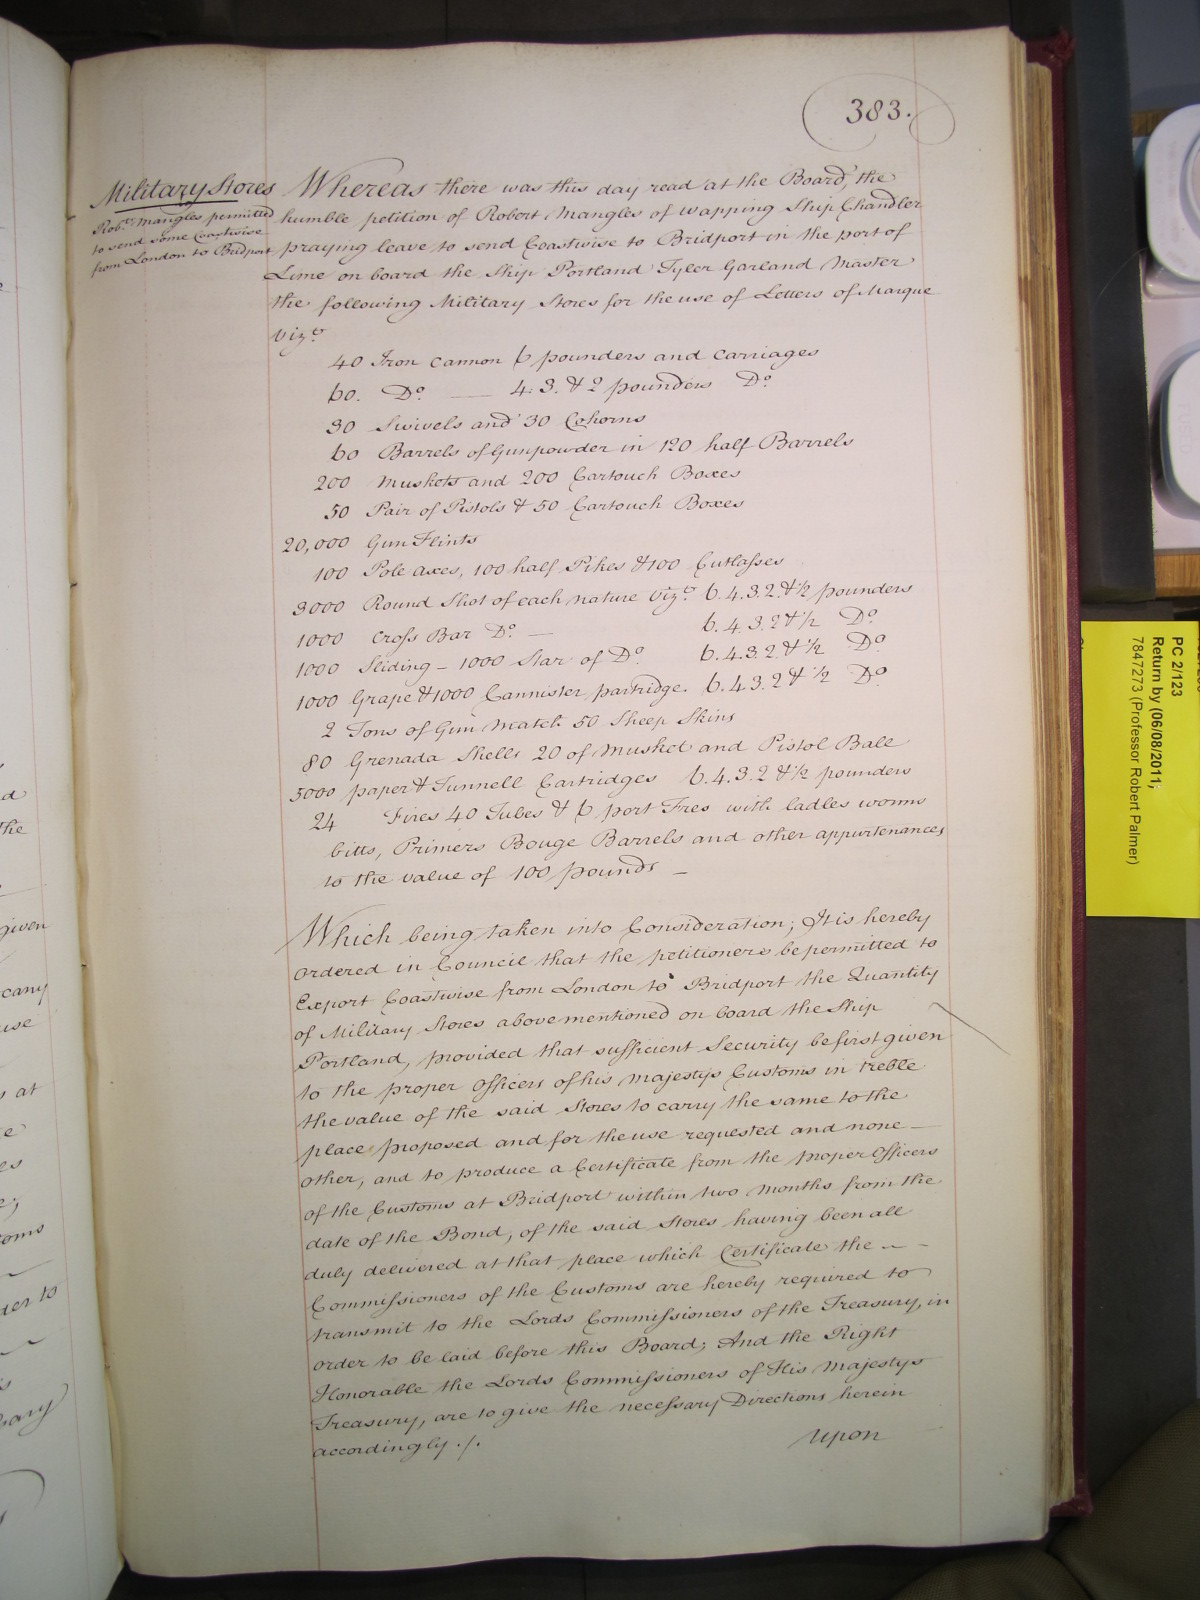 383.
Military Stores
Robt. Mangles permitted
to send some Coastwise
from London to Bridport
Whereas there was this day read at the Board, the
humble petition of Robert Mangles of Wapping Ship Chandler
praying leave to send Coastwise to Bridport in the port of
Lime on board the Ship Portland Tyler Garland Master
the following Military Stores for the use of Letters of Marque
Vizt.
40 Iron Cannon 6 pounders and Carriages
60. Do. — 4. 3. & 2 pounders Do.
30 Swivels and 30 Cohorns
60 Barrels of Gunpowder in 120 half Barrels
200 Muskets and 200 Cartouch Boxes
50 Pair of Pistols & 50 Cartouch Boxes
20,000 Gun Flints
100 Pole axes, 100 half Pikes & 100 Cutlasses
3000 Round Shot of each nature Vizt. 6. 4. 3. 2. & ½ pounders
1000 Cross Bar Do. — 6. 4. 3. 2 & ½ Do.
1000 Sliding – 1000 Star of Do. 6. 4. 3. 2 & ½ Do.
1000 Grape & 1000 Cannister partridge. 6. 4. 3. 2 & ½ Do.
2 Tons of Gun Match 50 Sheep Skins
80 Grenada Shells 20 of Musket and Pistol Ball
5000 paper & Funnell Cartridges 6. 4. 3. 2 & ½ pounders
24 Fires 40 Tubes & 6 port Fires with ladles worms
bitts, Primers Bouge Barrels and other appurtenances
to the value of 100 pounds –
Which being taken into Consideration; It is hereby
ordered in Council that the petitioners be permitted to
Export Coastwise from London to Bridport the Quantity
of Military Stores abovementioned on board the Ship
Portland, provided that sufficient Security be first given
to the proper Officers of his Majestys Customs in treble
the value of the said Stores to carry the same to the
place proposed and for the use requested and none —
other, and to produce a Certificate from the proper Officers
of the Customs at Bridport within two Months from the
date of the Bond, of the said Stores having been all
duly delivered at that place which Certificate the — –
Commissioners of the Customs are hereby required to
transmit to the Lords Commissioners of the Treasury, in
order to be laid before this Board; And the Right
Honorable the Lords Commissioners of His Majestys
Treasury, are to give the necessary Directions herein
accordingly ./.
Upon
PC 2/123
Return by (06/08/2011;
7847273 (Professor Robert Palmer)
the
given
cany
use
at
es
toms
der to